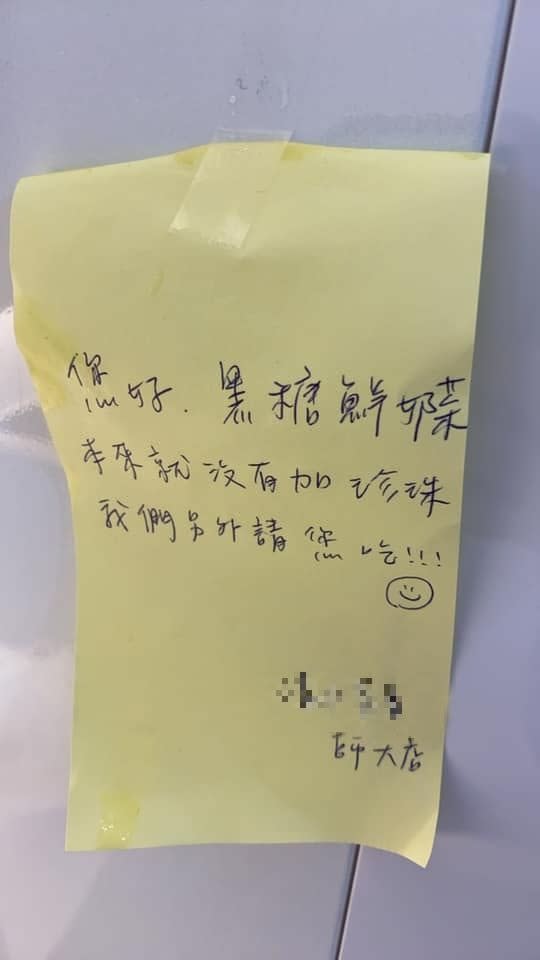 您好.黑糖鮮奶茶
本來就沒有加珍珠
我們另外請您吃!!!
師大店